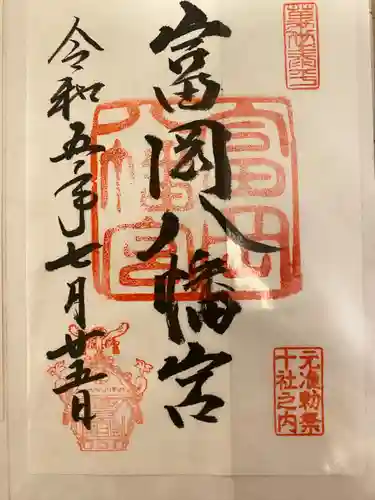 萬世泰平
富岡八幡宮
富岡八幡宮
元准勅祭
十社之内
令和五年七月廿五日